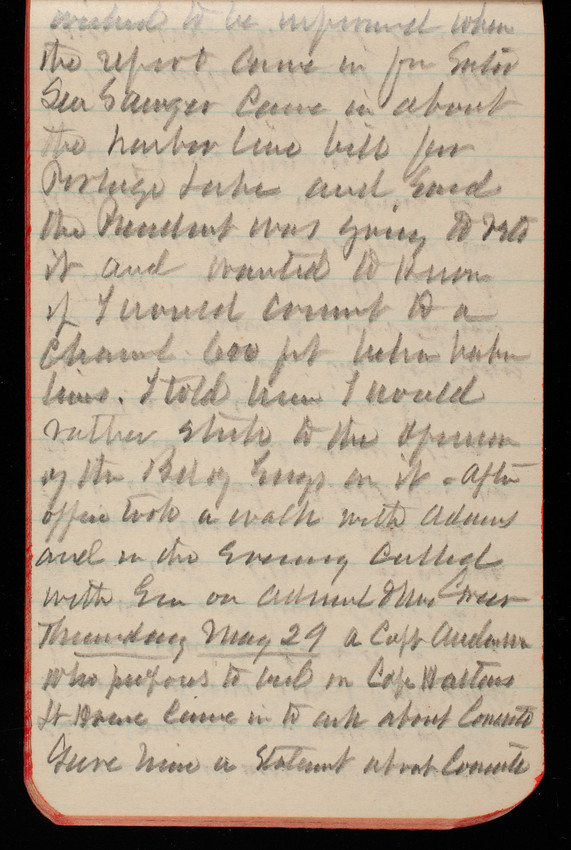 wished to be informed when
the report came in for Senator
Gen Sawyer came in about
the harbor line bill for
Portage Lake and said
the President was going to veto
it and wanted to know
if I would consent to a
channel 600 ft between harbor
lines. I told him I would
rather stick to the opinion
of the Bd of Engrs on it - After
office took a walk with Adams
and in the Evening called
with Gen on Admiral & Mrs Greer
Thursday May 29 a Capt
who proposes to build on Cape Hatteras
Lt House came in to ask about Concrete
Gave him a statement about Concrete